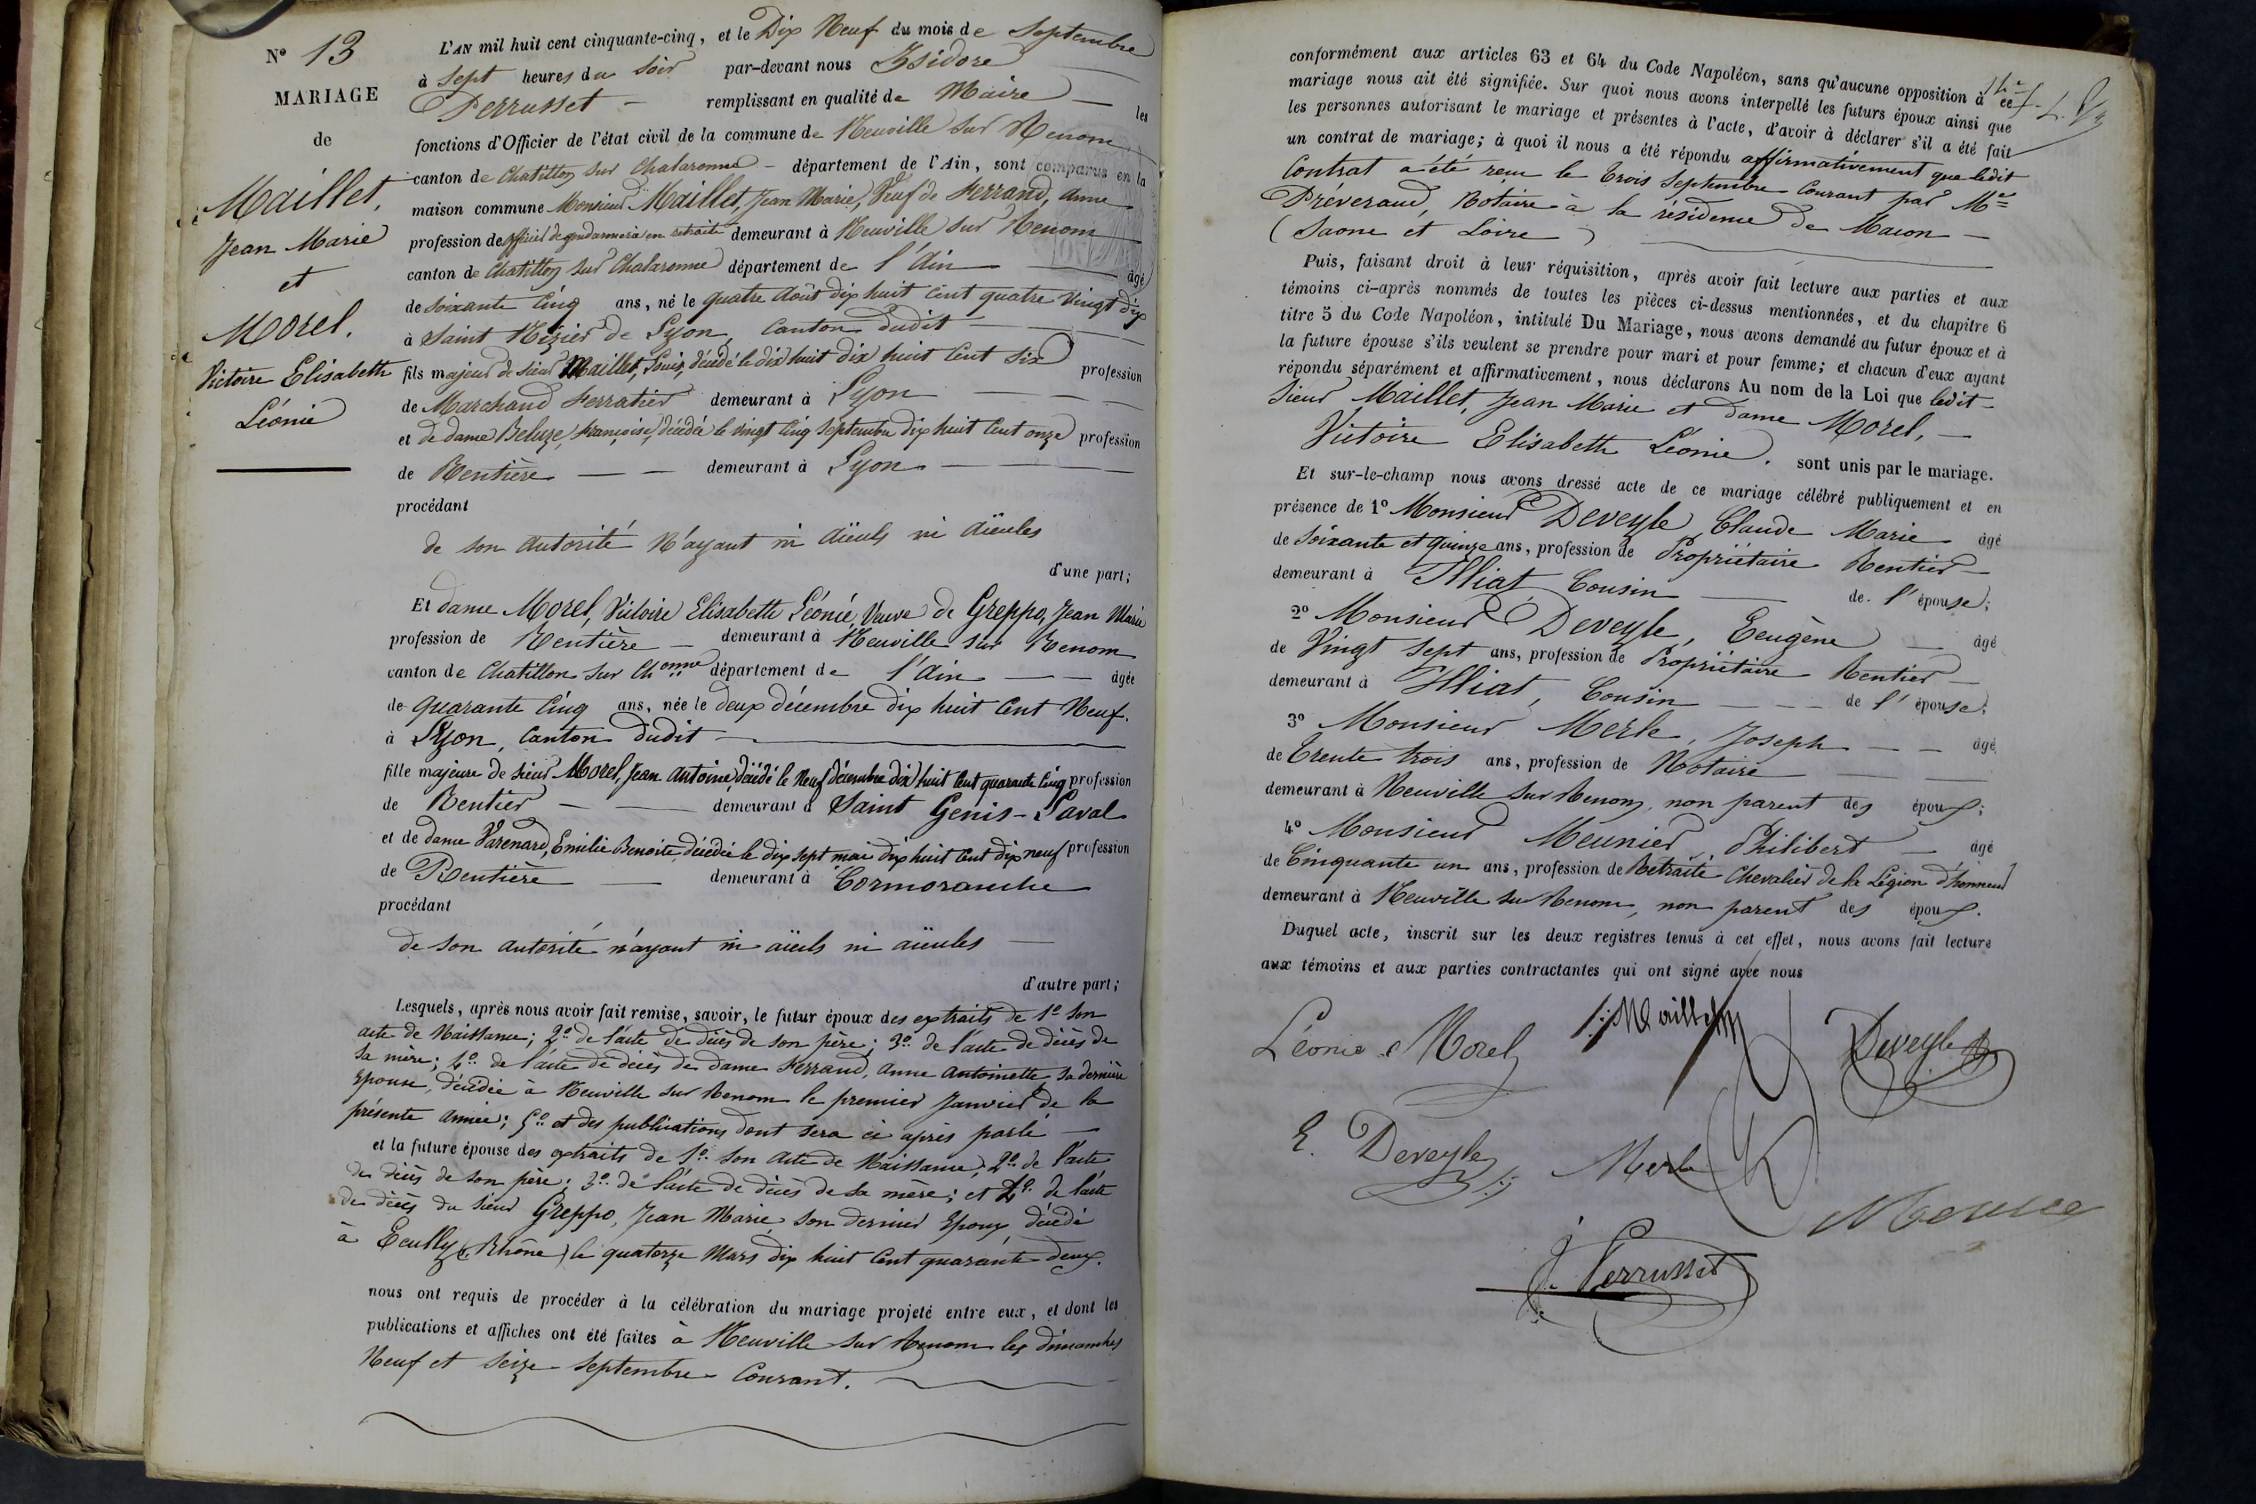 N° 13
MARIAGE
de
Maillet,
Jean Marie
et
Morel.
Victoire Elisabeth
Léonie
L'AN mil huit cent cinquante-cinq, et le Dix Neuf du mois de Septembre
à Sept heures du Soir par-devant nous Isidore
Perrusset - remplissant en qualité de Maire — les
fonctions d'Officier de l'état civil de la commune de Neuville sur Renom
canton de Chatillon sur Chalaronne - département de l'Ain, sont comparus en la
maison commune Monsieur Maillet, Jean Marie, Veuf de Ferrand, Anne
profession de officier de gendarmerie en retraite demeurant à Neuville sur Renom
canton de Chatillon sur Chalaronne département de l'Ain — âgé
de soixante Cinq ans, né le quatre Août dix huit Cent quatre Vingt dix
à Saint Nizier de Lyon, Canton dudit —
fils majeur de sieur Maillet, Louis, décédé le dix huit dix huit Cent Six profession
de Marchand Ferratier demeurant à Lyon —
et de dame Beluze, Françoise, décédée le Vingt Cinq Septembre dix huit Cent onze profession
de Rentière — — demeurant à Lyon —
procédant
de son Autorité N'ayant ni Aïeuls ni Aïeules
d'une part;
Et dame Morel, Victoire Elisabeth Léonie, Veuve de Greppo, Jean Marie
profession de Rentière — demeurant à Neuville sur Renom
canton de Chatillon sur Chonne département de l'Ain — — âgée
de quarante Cinq ans, née le deux décembre dix huit Cent Neuf.
à Lyon, Canton dudit —
fille majeure de sieur Morel, Jean Antoine, décédé le Neuf décembre dix huit Cent quarante Cinq profession
de Rentier — demeurant à Saint Genis-Laval
et de dame Varenard, Emilie Benoite, décédée le dix sept mai dix huit Cent dix neuf profession
de Rentière — demeurant à Cormoranche
procédant
de son autorité n'ayant ni aïeuls ni aïeules —
d'autre part;
Lesquels, après nous avoir fait remise, savoir, le futur époux des extraits de 1° Son
acte de Naissance; 2° de l'acte de décès de son père; 3° de l'acte de décès de
Sa mère; 4° de l'acte de décès de dame Ferrand, Anne Antoinette, Sa dernière
Epouse, décédée à Neuville sur Renom le premier Janvier de la
présente Année; 5° et des publications dont sera ci après parlé —
et la future épouse des extraits de 1° son Acte de Naissance; 2° de l'acte
de décès de son père; 3° de l'acte de décès de Sa mère; et 4° de l'acte
de décès du sieur Greppo, Jean Marie son dernier Epoux, décédé
à Ecully (Rhône) le quatorze Mars dix huit Cent quarante deux.
nous ont requis de procéder à la célébration du mariage projeté entre eux, et dont les
publications et affiches ont été faites à Neuville sur Renom les dimanches
Neuf et Seize Septembre Courant.
conformément aux articles 63 et 64 du Code Napoléon, sans qu'aucune opposition à ce
mariage nous ait été signifiée. Sur quoi nous avons interpellé les futurs époux ainsi que
les personnes autorisant le mariage et présentes à l'acte, d'avoir à déclarer s'il a été fait
un contrat de mariage; à quoi il nous a été répondu affirmativement que ledit
Contrat a été reçu le trois Septembre Courant par Me
Préveraud, Notaire à la résidence de Macon —
(Saone et Loire)
Puis, faisant droit à leur réquisition, après avoir fait lecture aux parties et aux
témoins ci-après nommés de toutes les pièces ci-dessus mentionnées, et du chapitre 6
titre 5 du Code Napoléon, intitulé Du Mariage, nous avons demandé au futur époux et à
la future épouse s'ils veulent se prendre pour mari et pour femme; et chacun d'eux ayant
répondu séparément et affirmativement, nous déclarons Au nom de la Loi que ledit
Sieur Maillet, Jean Marie et dame Morel, —
Victoire Elisabeth Léonie. sont unis par le mariage.
Et sur-le-champ nous avons dressé acte de ce mariage célébré publiquement et en
présence de 1° Monsieur Deveyle, Claude Marie âgé
de Soixante et quinze ans, profession de Propriétaire Rentier —
demeurant à Illiat, Cousin — de l'épouse;
2° Monsieur Deveyle, Eeugène — âgé
de Vingt Sept ans, profession de Propriétaire Rentier —
demeurant à Illiat, Cousin — — de l'épouse;
3° Monsieur Merle, Joseph — — âgé
de Trente trois ans, profession de Notaire —
demeurant à Neuville sur Renom, non parent des époux;
4° Monsieur Meunier, Philibert — âgé
de Cinquante un ans, profession de Retraité Chevalier de la Légion d'honneur
demeurant à Neuville sur Renom, non parent des époux.
Duquel acte, inscrit sur les deux registres tenus à cet effet, nous avons fait lecture
aux témoins et aux parties contractantes qui ont signé avec nous
Léonie Morel
Maillet
Deveyle
E. Deveyle
Merle
Perrusset